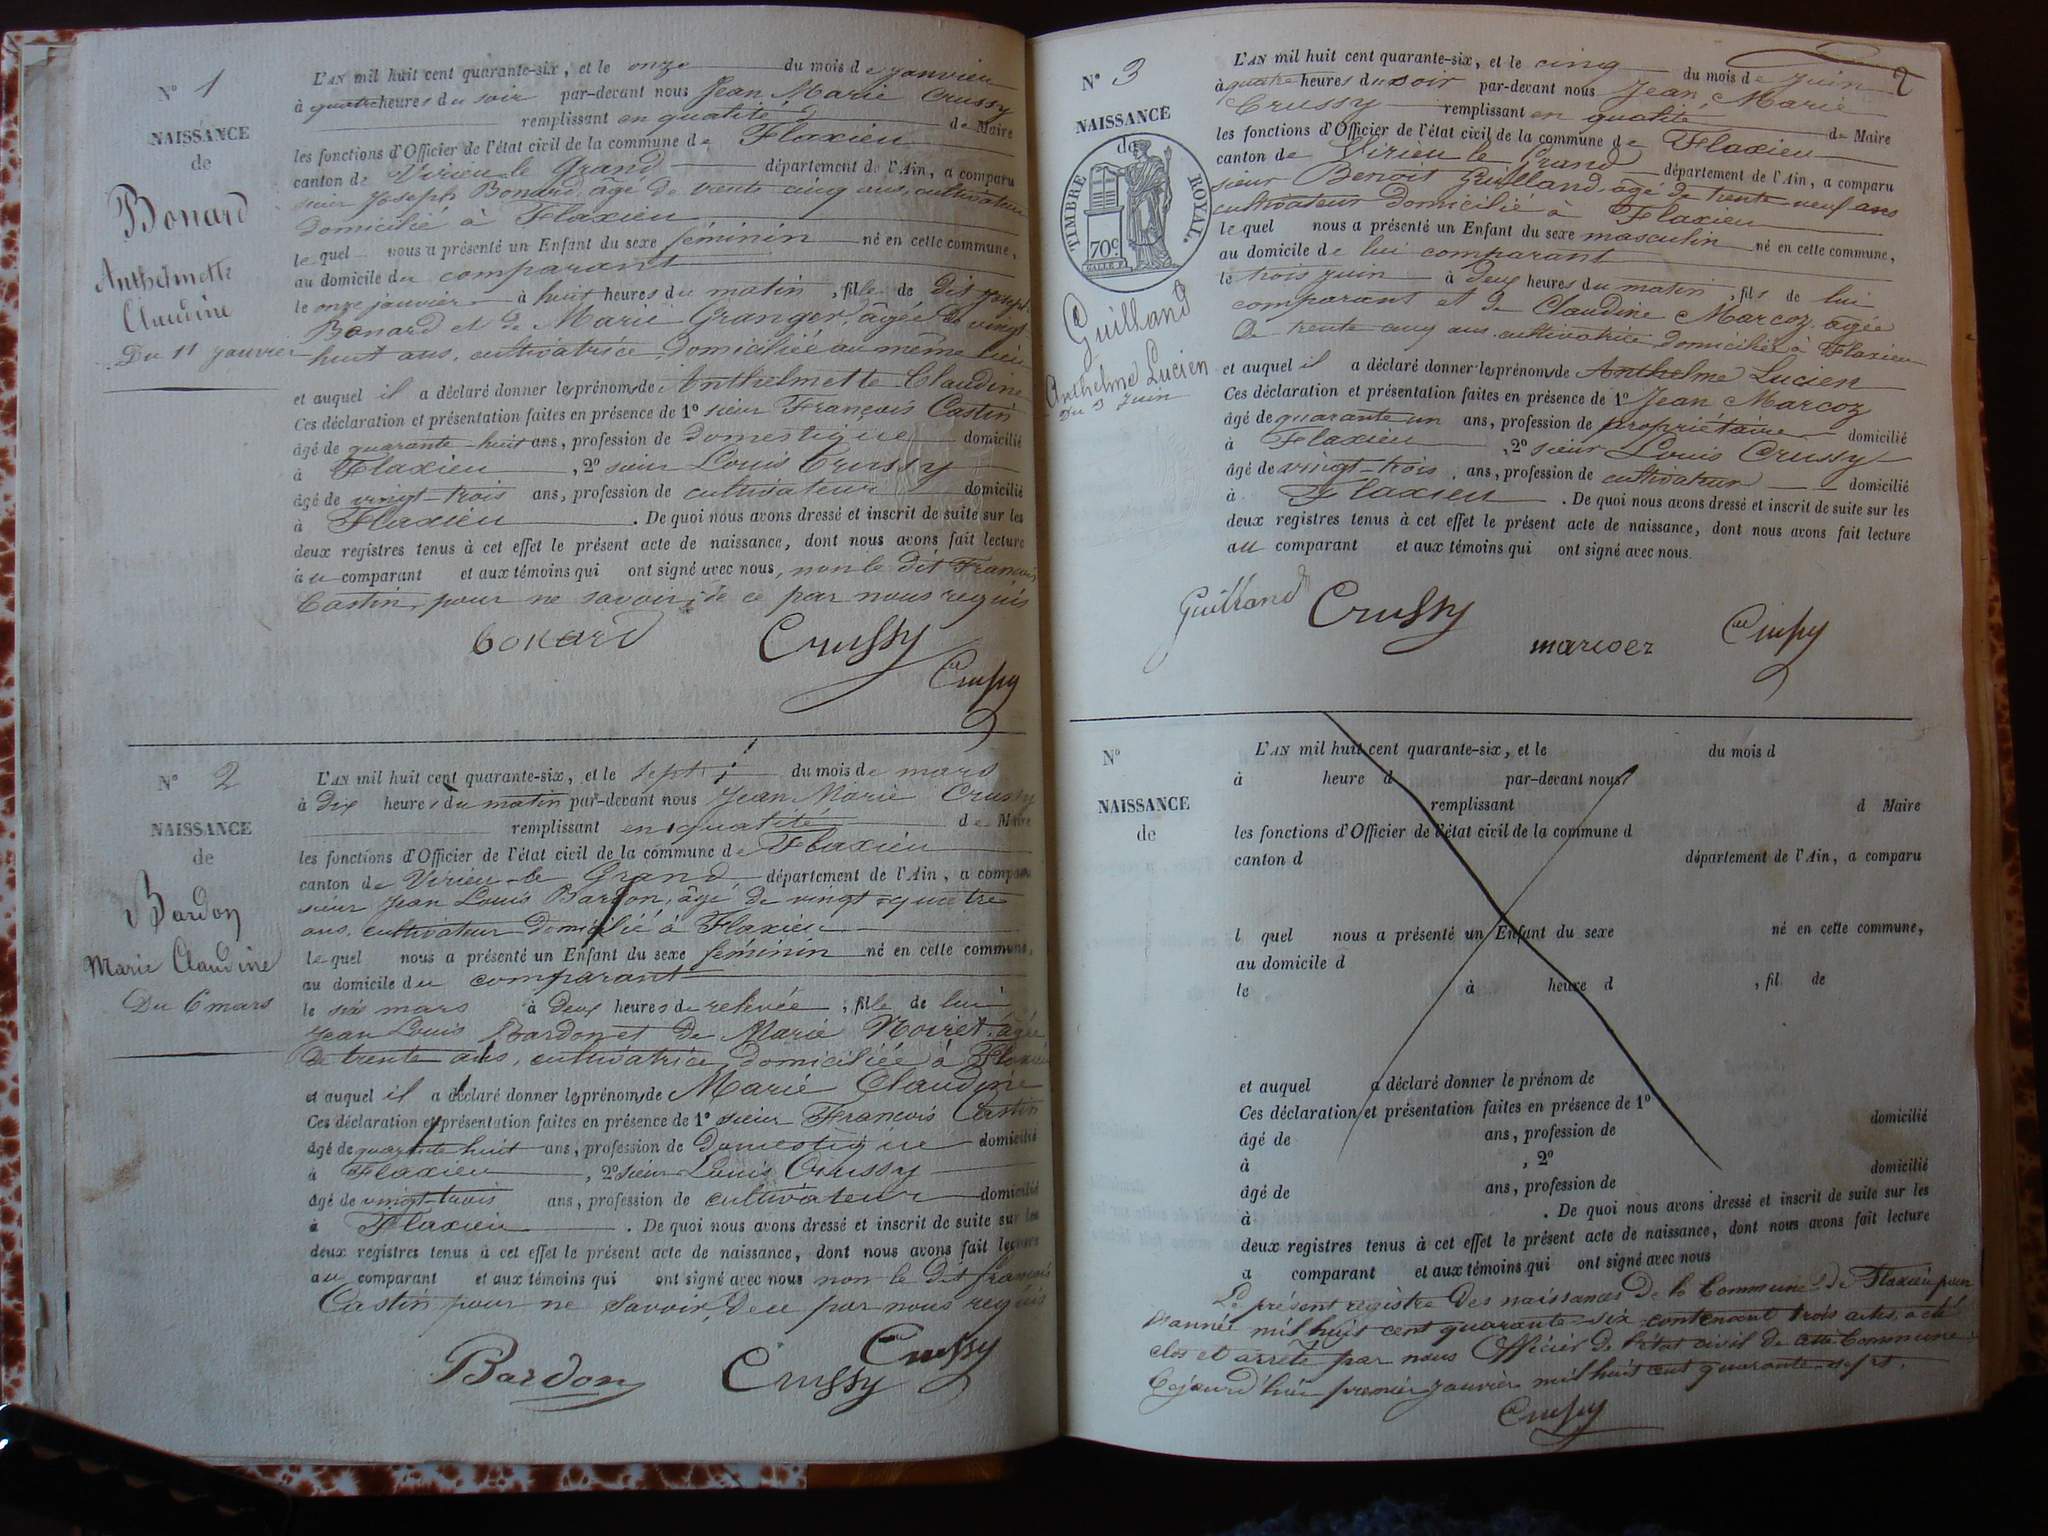 N° 1
NAISSANCE
de
Bonard
Anthelmette
Claudine
Du 11 janvier
L'AN mil huit cent quarante-six, et le onze du mois de janvier
à quatre heures du soir par-devant nous Jean Marie Crussy
remplissant en qualité de Maire
les fonctions d'Officier de l'état civil de la commune de Flaxieu
canton de Virieu le Grand département de l'Ain, a comparu
sieur Joseph Bonard, âgé de trente cinq ans, cultivateur
domicilié à Flaxieu
lequel nous a présenté un Enfant du sexe féminin né en cette commune,
au domicile du comparant
le onze janvier à huit heures du matin, fille de dit joseph
Bonard et de Marie Granger, âgée de vingt
huit ans, cultivatrice domiciliée au même lieu
et auquel il a déclaré donner les prénoms de Anthelmette Claudine
Ces déclaration et présentation faites en présence de 1° sieur François Castin
âgé de quarante-huit ans, profession de domestique domicilié
à Flaxieu, 2° sieur Louis Crussy
âgé de vingt-trois ans, profession de cultivateur domicilié
à Flaxieu. De quoi nous avons dressé et inscrit de suite sur les
deux registres tenus à cet effet le présent acte de naissance, dont nous avons fait lecture
au comparant et aux témoins qui ont signé avec nous, non le dit François
Castin, pour ne savoir, de ce par nous requis
bonard Crussy
Crussy
N° 2
NAISSANCE
de
Bardon
Marie Claudine
Du 6 mars
L'AN mil huit cent quarante-six, et le sept du mois de mars
à dix heures du matin par-devant nous Jean Marie Crussy
remplissant en qualité de Maire
les fonctions d'Officier de l'état civil de la commune de Flaxieu
canton de Virieu-le Grand département de l'Ain, a comparu
sieur Jean Louis Bardon, âgé de vingt-quatre
ans, cultivateur domicilié à Flaxieu
lequel nous a présenté un Enfant du sexe féminin né en cette commune,
au domicile du comparant
le six mars à deux heures de relevée, fille de lui
Jean Louis Bardon et de Marie Moiret, âgée
de trente ans, cultivatrice, domiciliée à Flaxieu
et auquel il a déclaré donner les prénoms de Marie Claudine
Ces déclaration et présentation faites en présence de 1° sieur François Castin
âgé de quarante huit ans, profession de domestique domicilié
à Flaxieu, 2° sieur Louis Crussy
âgé de vingt-trois ans, profession de cultivateur domicilié
à Flaxieu. De quoi nous avons dressé et inscrit de suite sur les
deux registres tenus à cet effet le présent acte de naissance, dont nous avons fait lecture
au comparant et aux témoins qui ont signé avec nous non le dit françois
Castin pour ne savoir, de ce par nous requis
Bardon Crussy Crussy
2
N° 3
NAISSANCE
de
TIMBRE ROYAL.
70c
Guilland
Anthelme Lucien
Du 3 juin
L'AN mil huit cent quarante-six, et le cinq du mois de juin
à quatre heures du soir par-devant nous Jean Marie
Crussy remplissant en qualité de Maire
les fonctions d'Officier de l'état civil de la commune de Flaxieu
canton de Virieu le Grand département de l'Ain, a comparu
sieur Benoit Guilland, âgé de trente neuf ans
cultivateur domicilié à Flaxieu
lequel nous a présenté un Enfant du sexe masculin né en cette commune,
au domicile de lui comparant
le trois juin à deux heures du matin, fils de lui
comparant et de Claudine Marcoz, âgée
de trente cinq ans, cultivatrice domiciliée à Flaxieu
et auquel il a déclaré donner les prénoms de Anthelme Lucien
Ces déclaration et présentation faites en présence de 1° Jean Marcoz
âgé de quarante un ans, profession de propriétaire domicilié
à Flaxieu, 2° sieur Louis Crussy
âgé de vingt-trois ans, profession de cultivateur domicilié
à Flaxieu. De quoi nous avons dressé et inscrit de suite sur les
deux registres tenus à cet effet le présent acte de naissance, dont nous avons fait lecture
au comparant et aux témoins qui ont signé avec nous.
Guilland Crussy marcoz Crussy
N°
NAISSANCE
de
L'AN mil huit cent quarante-six, et le du mois d
à heure d par-devant nous
remplissant d Maire
les fonctions d'Officier de l'état civil de la commune d
canton d département de l'Ain, a comparu
l quel nous a présenté un Enfant du sexe né en cette commune,
au domicile d
le à heure d , fil de
et auquel a déclaré donner le prénom de
Ces déclaration et présentation faites en présence de 1°
âgé de ans, profession de domicilié
à , 2°
âgé de ans, profession de domicilié
à . De quoi nous avons dressé et inscrit de suite sur les
deux registres tenus à cet effet le présent acte de naissance, dont nous avons fait lecture
a comparant et aux témoins qui ont signé avec nous
Le présent registre des naissances de la Commune de Flaxieu pour
l'année mil huit cent quarante-six contenant trois actes, a été
clos et arrêté par nous Officier de l'état civil de cette Commune
Cejourd'hui premier janvier mil huit cent quarante-sept.
Crussy